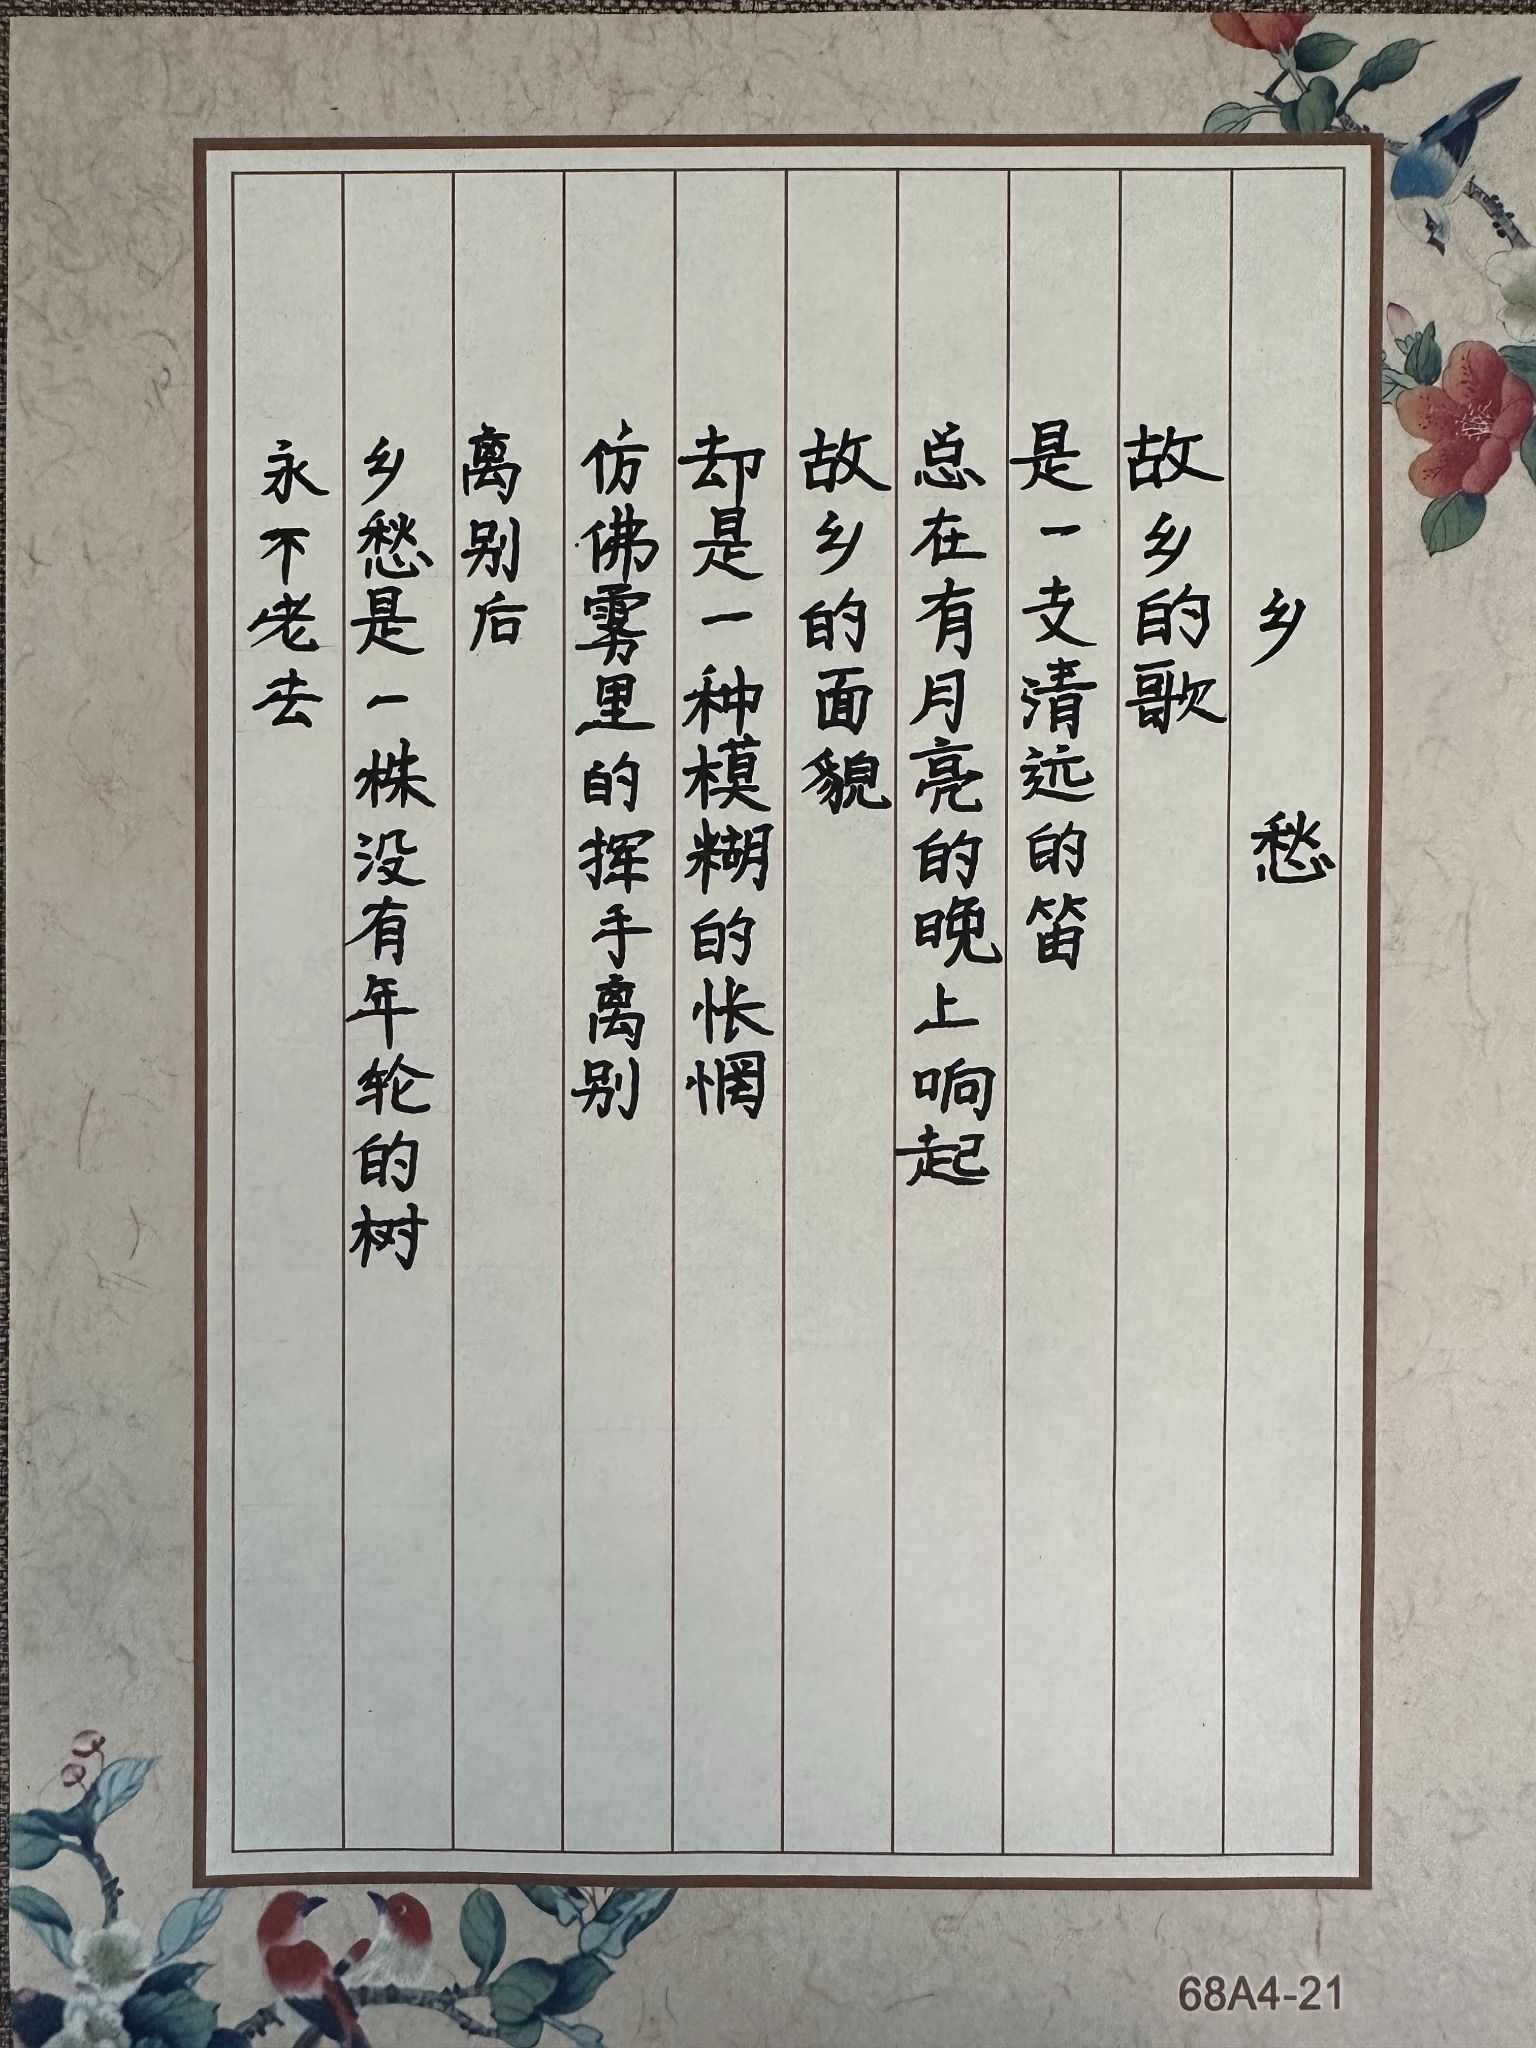 乡愁
故乡的歌
是一支清远的笛
总在有月亮的晚上响起
故乡的面貌
却是一种模糊的怅惘
仿佛雾里的挥手离别
离别后
乡愁是一株没有年轮的树
永不老去
68A4-21